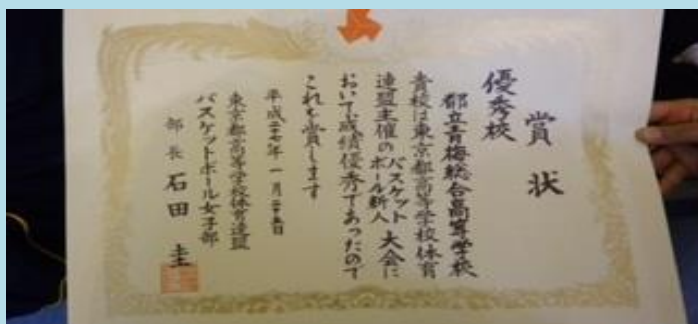 賞状
優秀校
都立青梅総合高等学校
貴校は東京都高等学校体育
連盟主催のバスケットボール新人大会に
おいて成績優秀であったので
これを賞します
平成二十七年一月二十五日
東京都高等学校体育連盟
バスケットボール女子部
部長 石田 圭